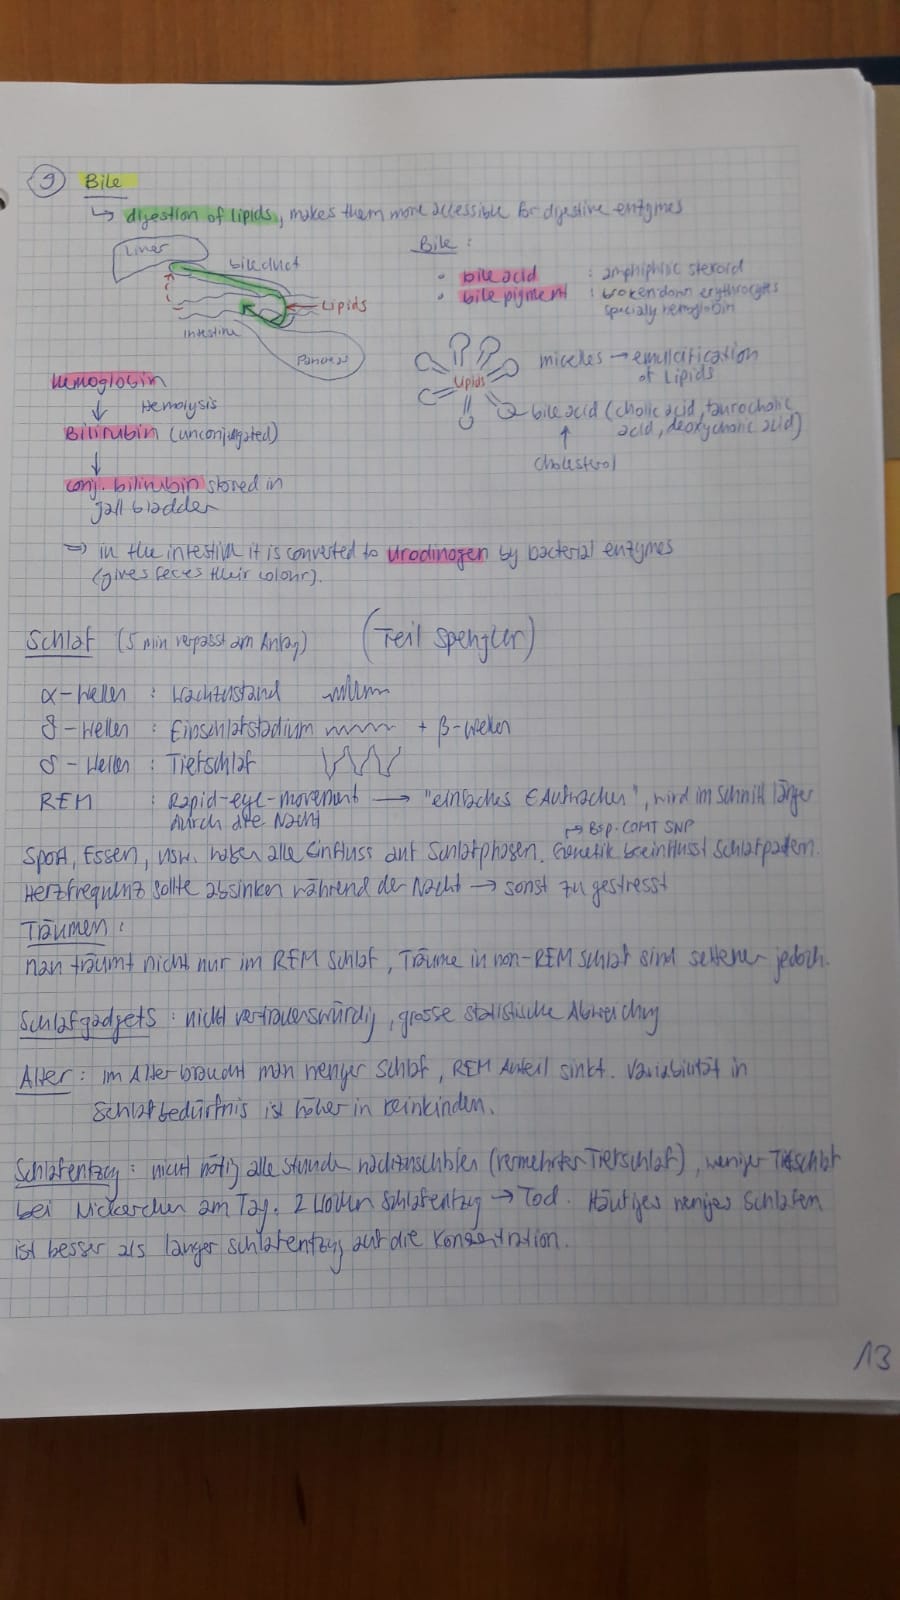 9 Bile
↳ digestion of lipids, makes them more accessible for digestive enzymes
Liver
bile duct
Lipids
intestine
Pancreas
Bile :
• bile acid : amphiphilic steroid
• bile pigment : broken down erythrocytes
specialy hemoglobin
Lipids
micelles → emulcification
of Lipids
bile acid (cholic acid, taurocholic
acid, deoxycholic acid)
↑
cholesterol
hemoglobin
↓ Hemolysis
Bilirubin (unconjugated)
↓
conj. bilirubin stored in
gall bladder
⇒ in the intestine it is converted to Urobinogen by bacterial enzymes
(gives feces their colour).
Schlaf (5 min verpasst am Anfang) (Teil Spengler)
α-Wellen : Wachzustand
-Wellen : Einschlafstadium + β-Wellen
δ-Wellen : Tiefschlaf
REM : Rapid-eye-movement → "einfaches Aufwachen", wird im Schnitt länger
durch die Nacht
→ Bsp. COMT SNP
Sport, Essen, usw. haben alle Einfluss auf Schlafphasen. Genetik beeinflusst Schlafpattern.
Herzfrequenz sollte absinken während der Nacht → sonst zu gestresst
Träumen :
Man träumt nicht nur im REM Schlaf, Träume in non-REM Schlaf sind seltener jedoch.
Schlafgadgets : nicht vertrauenswürdig, grosse statistische Abweichung
Alter : im Alter braucht man weniger Schlaf, REM Anteil sinkt. Variabilität in
Schlafbedürfnis ist höher in Kleinkinden.
Schlafentzug : nicht nötig alle Stunden nachzuschlafen (vermehrter Tiefschlaf), weniger Tiefschlaf
bei Nickerchen am Tag. 2 Wochen Schlafentzug → Tod. Häufiges weniges Schlafen
ist besser als langer Schlafentzug auf die Konzentration.
13